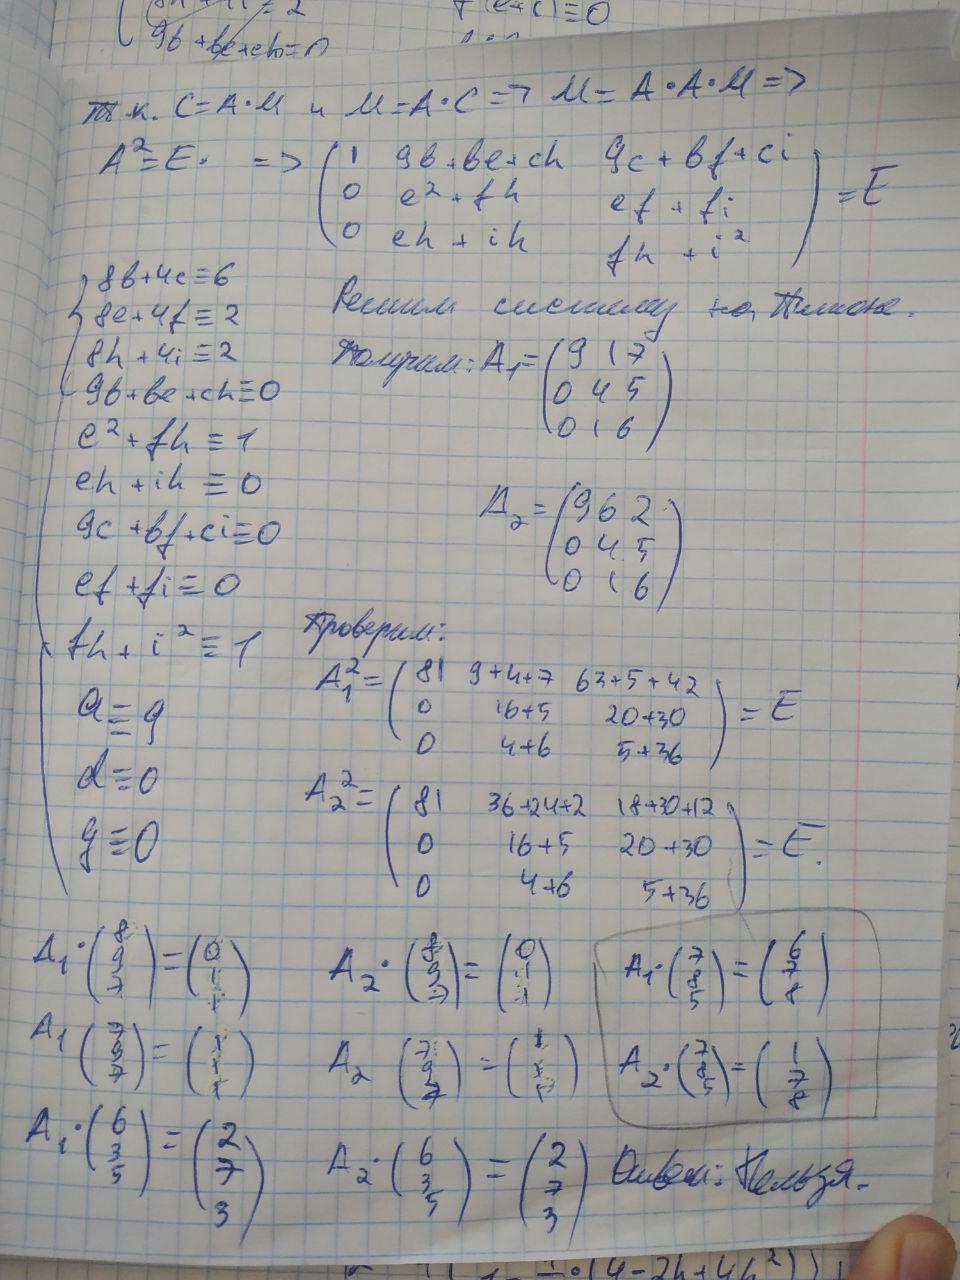 9b+be+ch=0
Т.к. C=A·M и M=A·C => M=A·A·M =>
A²=E. => (1 9b+be+ch 9c+bf+ci
0 e²+fh ef+fi
0 eh+ih fh+i²) =E
{8b+4c≡6
8e+4f≡2
8h+4i≡2
9b+be+ch≡0
e²+fh≡1
eh+ih≡0
9c+bf+ci≡0
ef+fi≡0
fh+i²≡1
a≡9
d≡0
g≡0
Решим систему на
Получим: A₁=(9 1 7
0 4 5
0 1 6)
A₂=(9 6 2
0 4 5
0 1 6)
Проверим:
A₁²=(81 9+4+7 63+5+42
0 16+5 20+30
0 4+6 5+36) =E
A₂²=(81 36+24+2 18+30+12
0 16+5 20+30
0 4+6 5+36) =E.
A₁·(8 9 7)=(0 1 1)
A₂· = (0 1 1)
A₁·(7 8 5)=(6 7 8)
A₁
A₂
A₂·(7 8 5)=(1 7 8)
A₁·(6 3 5)=(2 7 3)
A₂·(6 3 5)=(2 7 3)
Ответ: Нельзя.